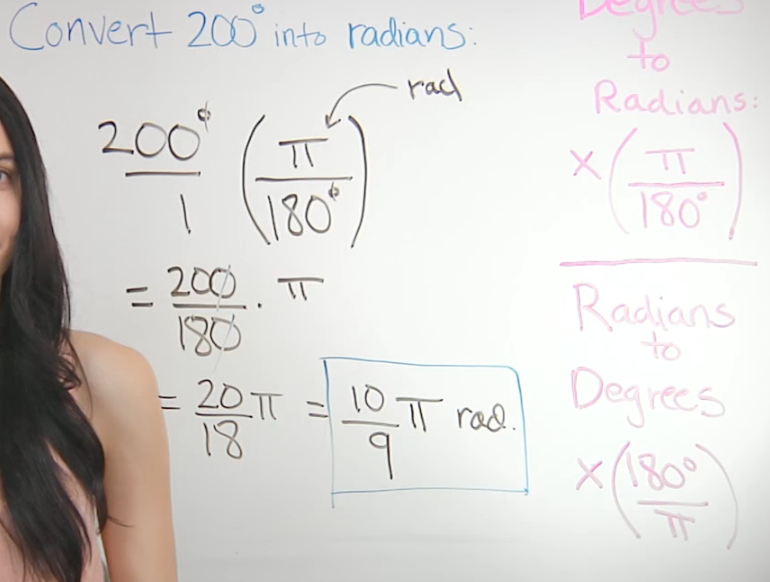 Convert 200° into radians:
rad
200° / 1 (π / 180°)
= 200 / 180 · π
= 20 / 18 π = 10 / 9 π rad.
Degrees
to
Radians:
× (π / 180°)
Radians
to
Degrees
× (180° / π)